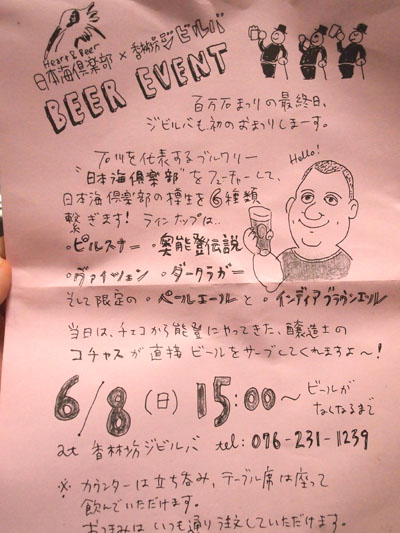 Heart & Beer
日本海倶楽部 × 香林坊ジビルバ
BEER EVENT
百万石まつりの最終日、
ジビルバも初のおまつりしまーす。
石川を代表するブルワリー
"日本海倶楽部"をフューチャーして、
日本海倶楽部の樽生を6種類
繋ぎます! ラインナップは…
・ピルスナー ・奥能登伝説
・ヴァイツェン ・ダークラガー
そして限定の・ペールエールと・インディアブラウンエール
Hello!
当日は、チェコから能登にやってきた、醸造士の
コチャスが直接ビールをサーブしてくれますよ〜!
6/8(日) 15:00〜 ビールが
なくなるまで
at 香林坊ジビルバ tel: 076-231-1239
※ カウンターは立ち呑み、テーブル席は座って
飲んでいただけます。
おつまみはいつも通り注文していただけます。